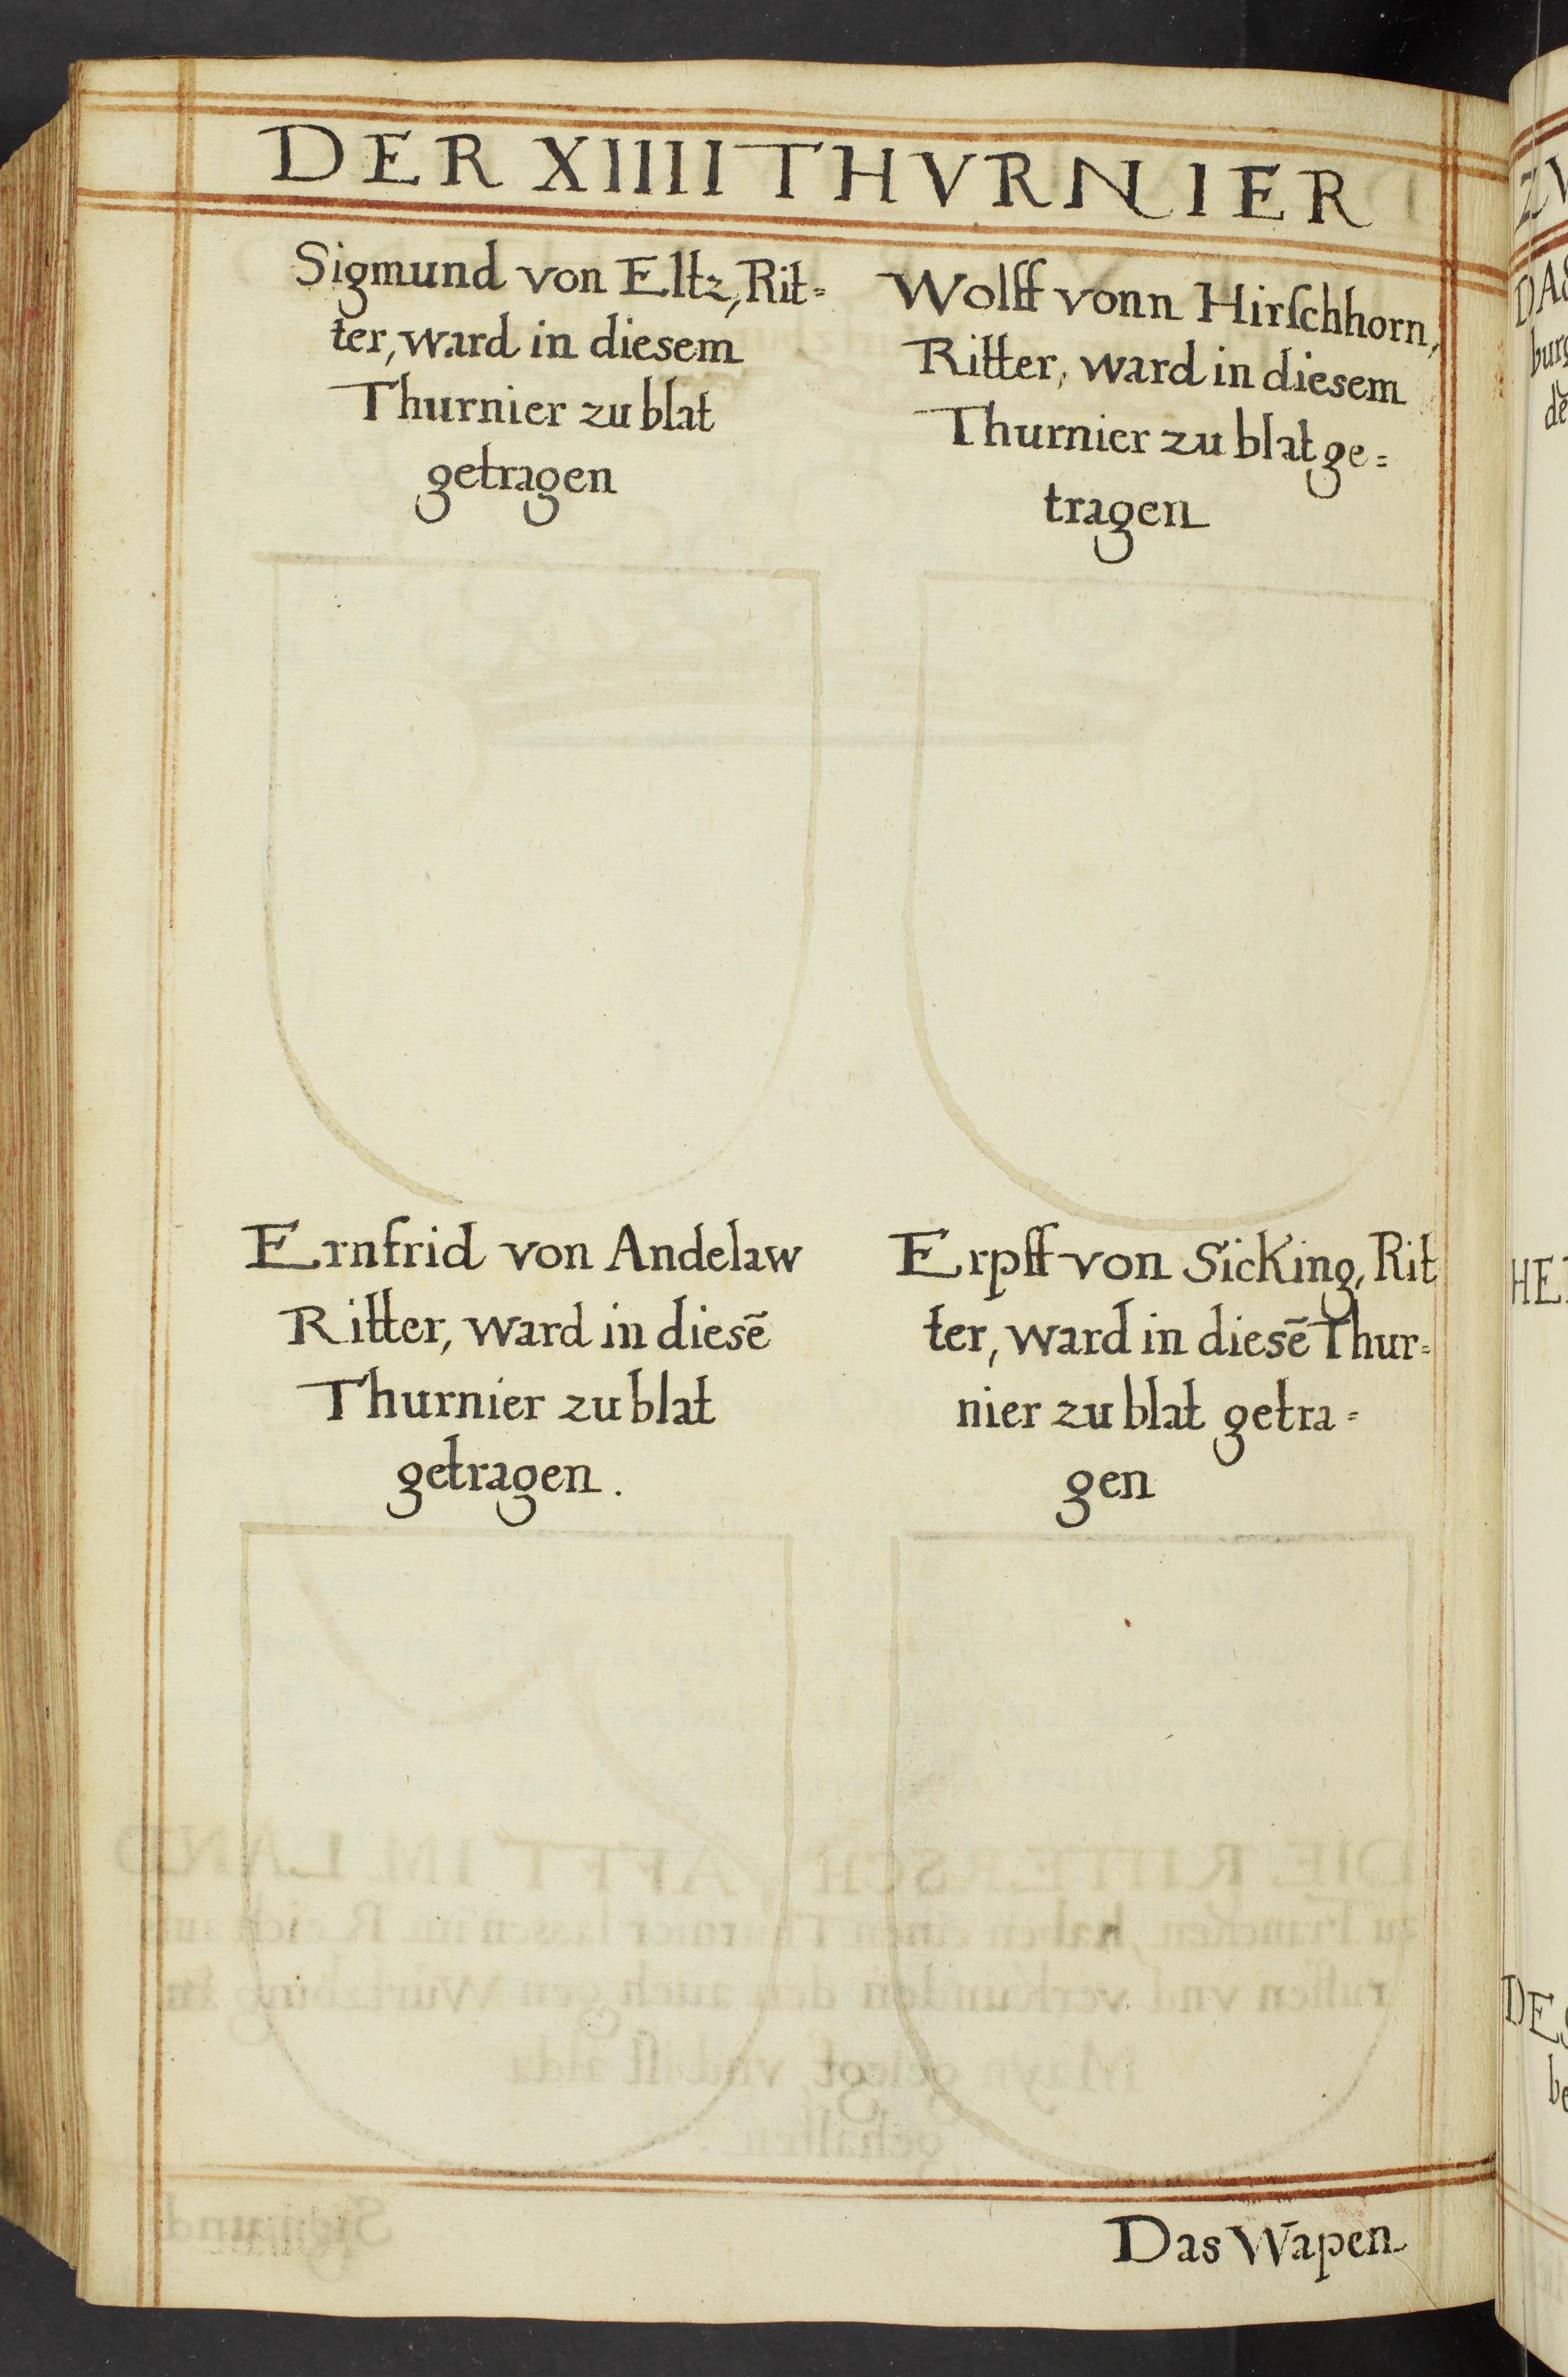 DER XIIIII THVRNIER
Sigmund von Eltz, Rit=
ter, ward in diesem
Thurnier zu blat
getragen
Wolff vonn Hirſchhorn,
Ritter, ward in diesem
Thurnier zu blat ge=
tragen
Ernfrid von Andelaw
Ritter, ward in diesē
Thurnier zu blat
getragen.
Erpff von Sicking, Rit
ter, ward in diesē Thur=
nier zu blat getra=
gen
Das Wapen